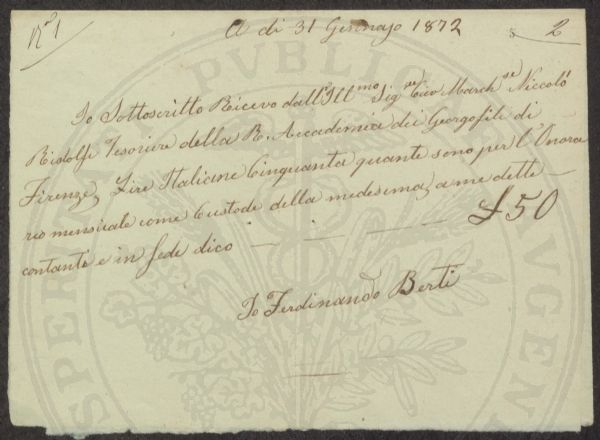 N° 1
A di 31 Gennajo 1872
2
Io Sottoscritto Ricevo dall'Ill.mo Sig.re March.se Niccolò
Ridolfi Tesoriere della R. Accademia dei Georgofili di
Firenze, Lire Italiane Cinquanta quante sono per l'Onora
rio mensicale come Custode della medesima, a me dette
contanti e in fede dico £50
Io Ferdinando Berti
PUBLICAE
PROSPERITATI
AUGENDAE